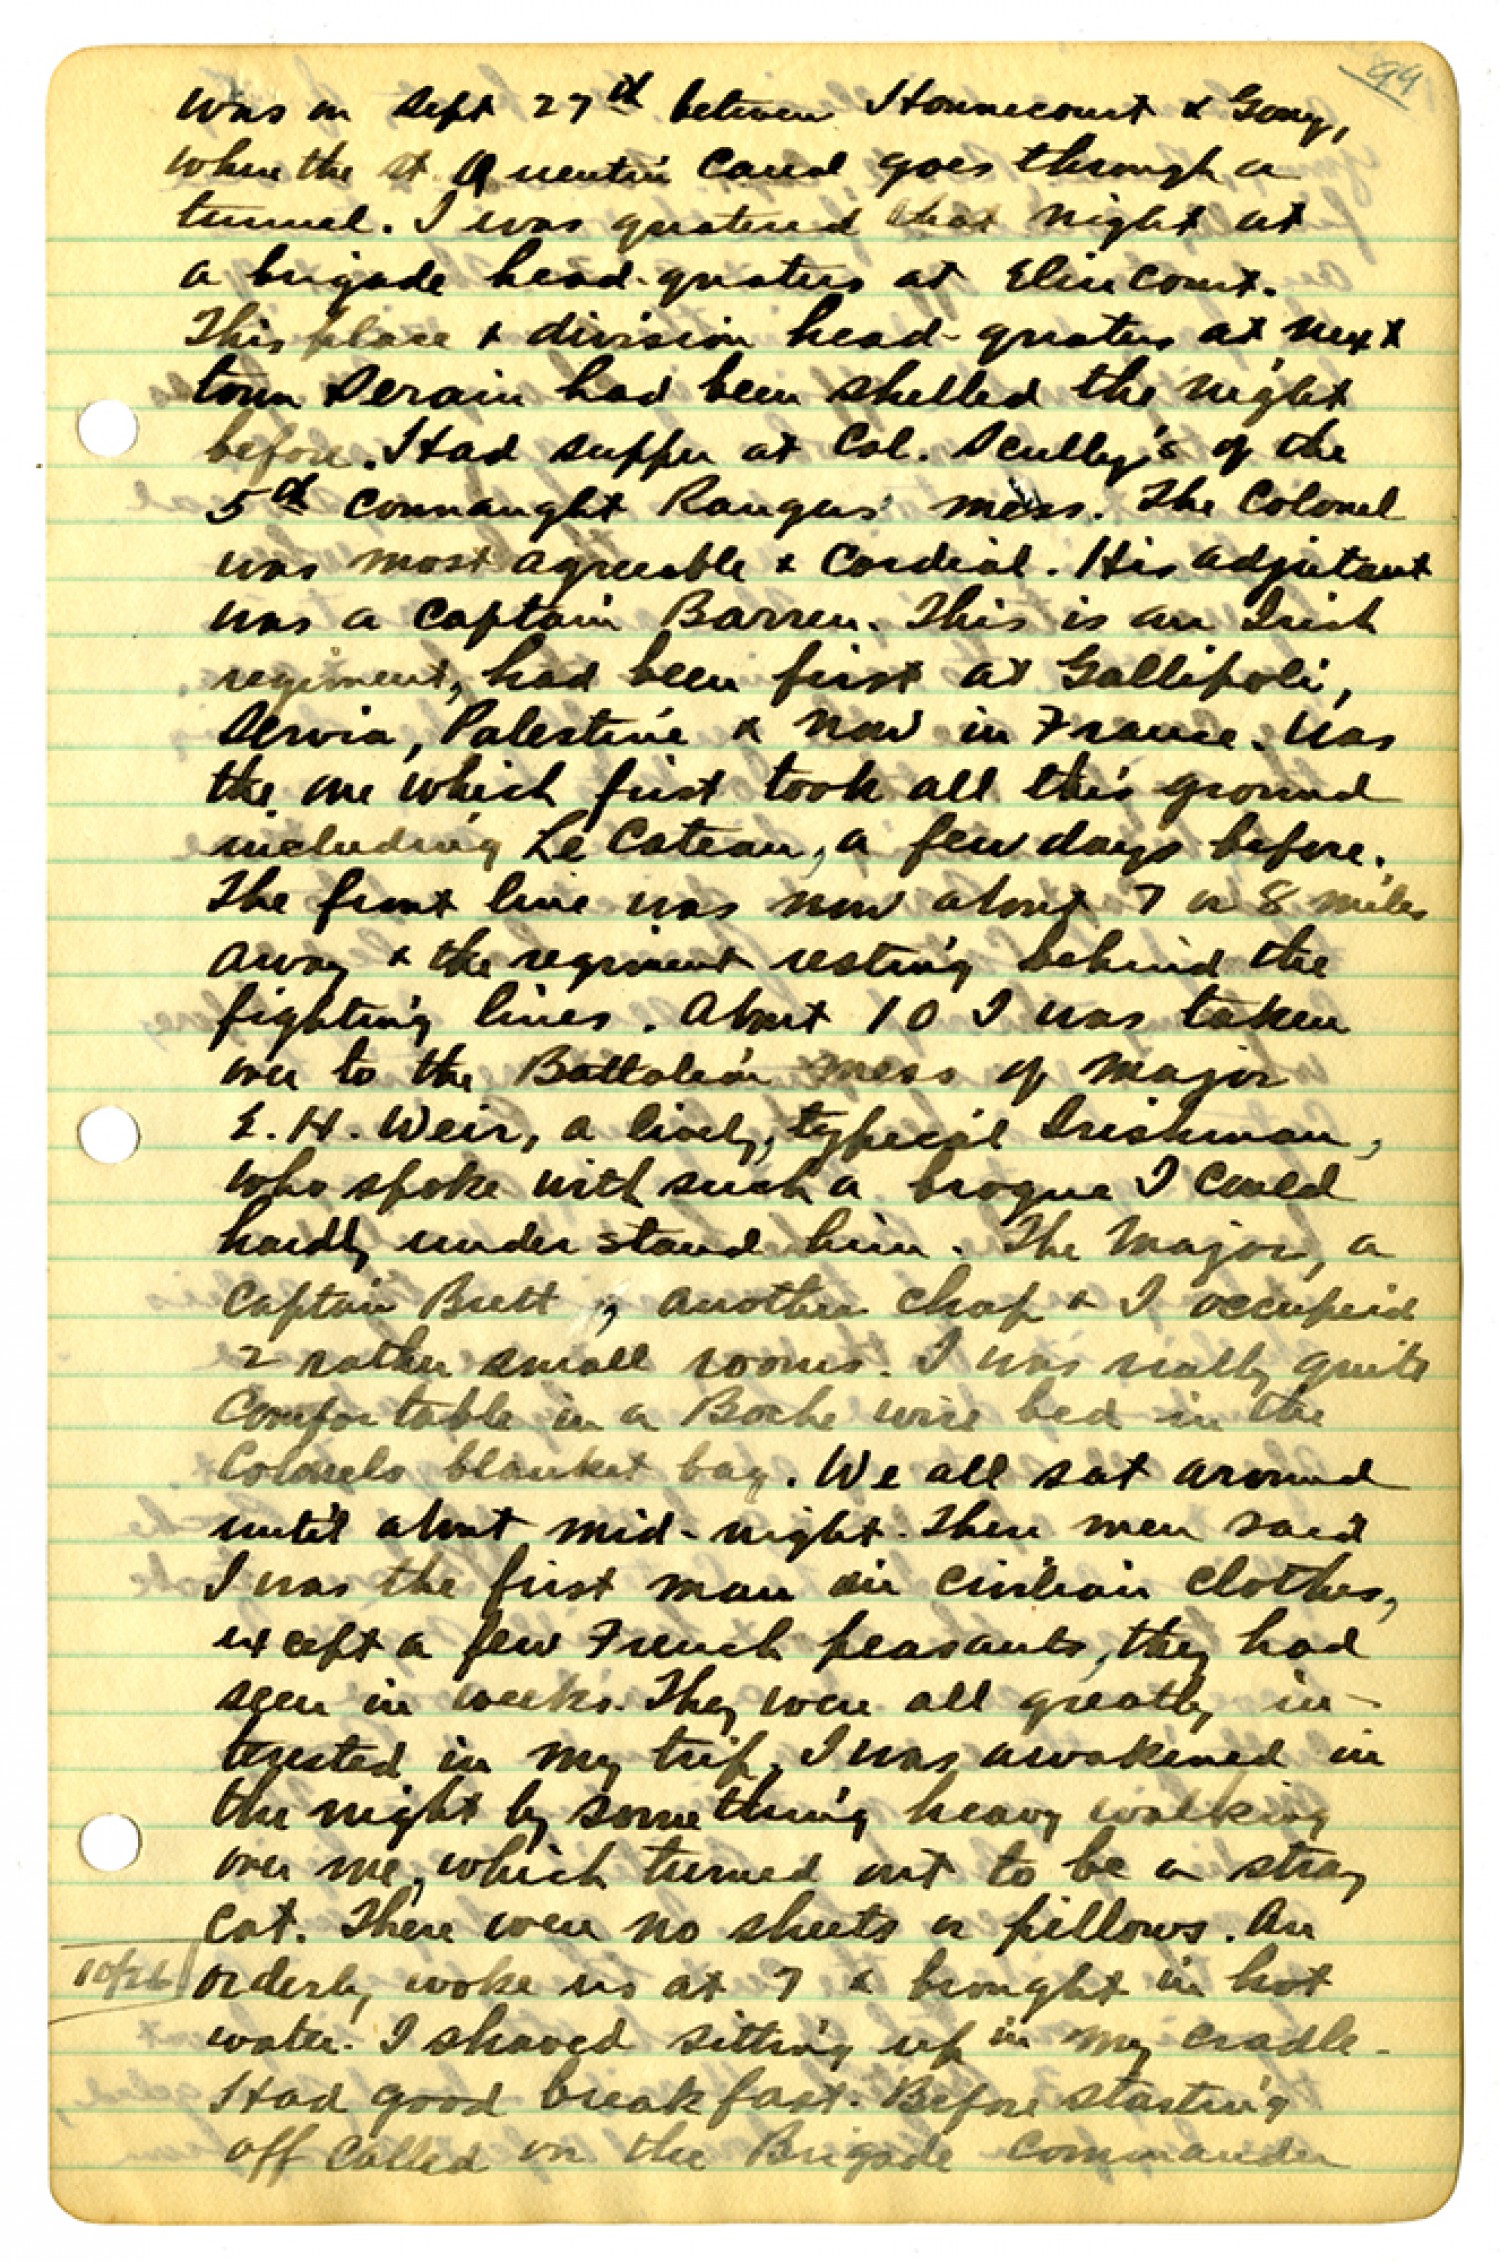 99
was on Sept 27th between Honnecourt & Gouy,
where the St. Quentin Canal goes through a
tunnel. I was quatered that night at
a brigade head-quaters at Elincourt.
This place & division head-quaters at next
town Serain had been shelled the night
before. Had supper at Col. Scully's of the
5th Connaught Rangers' mess. The Colonel
was most agreeable & Cordial. His adjutant
was a Captain Barren. This is an Irish
regiment, had been first at Gallipoli,
Servia, Palestine & now in France. Was
the one which first took all this ground
including Le Cateau, a few days before.
The front line was now about 7 or 8 miles
away & the regiment resting behind the
fighting lines. About 10 I was taken
over to the Battalion mess of Major
E. H. Weir, a lively, typical Irishman,
who spoke with such a brogue I could
hardly understand him. The Major, a
Captain Brett, another chap & I occupied
2 rather small rooms. I was really quite
Comfortable in a Boche wire bed in the
Colonels blanket bag. We all sat around
until about mid-night. These men said
I was the first man in civilian clothes,
except a few French peasants, they had
seen in weeks. They were all greatly in-
terested in my trip. I was awakened in
the night by something heavy walking
over me, which turned out to be a stray
Cat. There were no sheets or pillows. An
10/26 orderly woke us at 7 & brought in hot
water. I shaved sitting up in my cradle.
Had good breakfast. Before starting
off called on the Brigade Commander